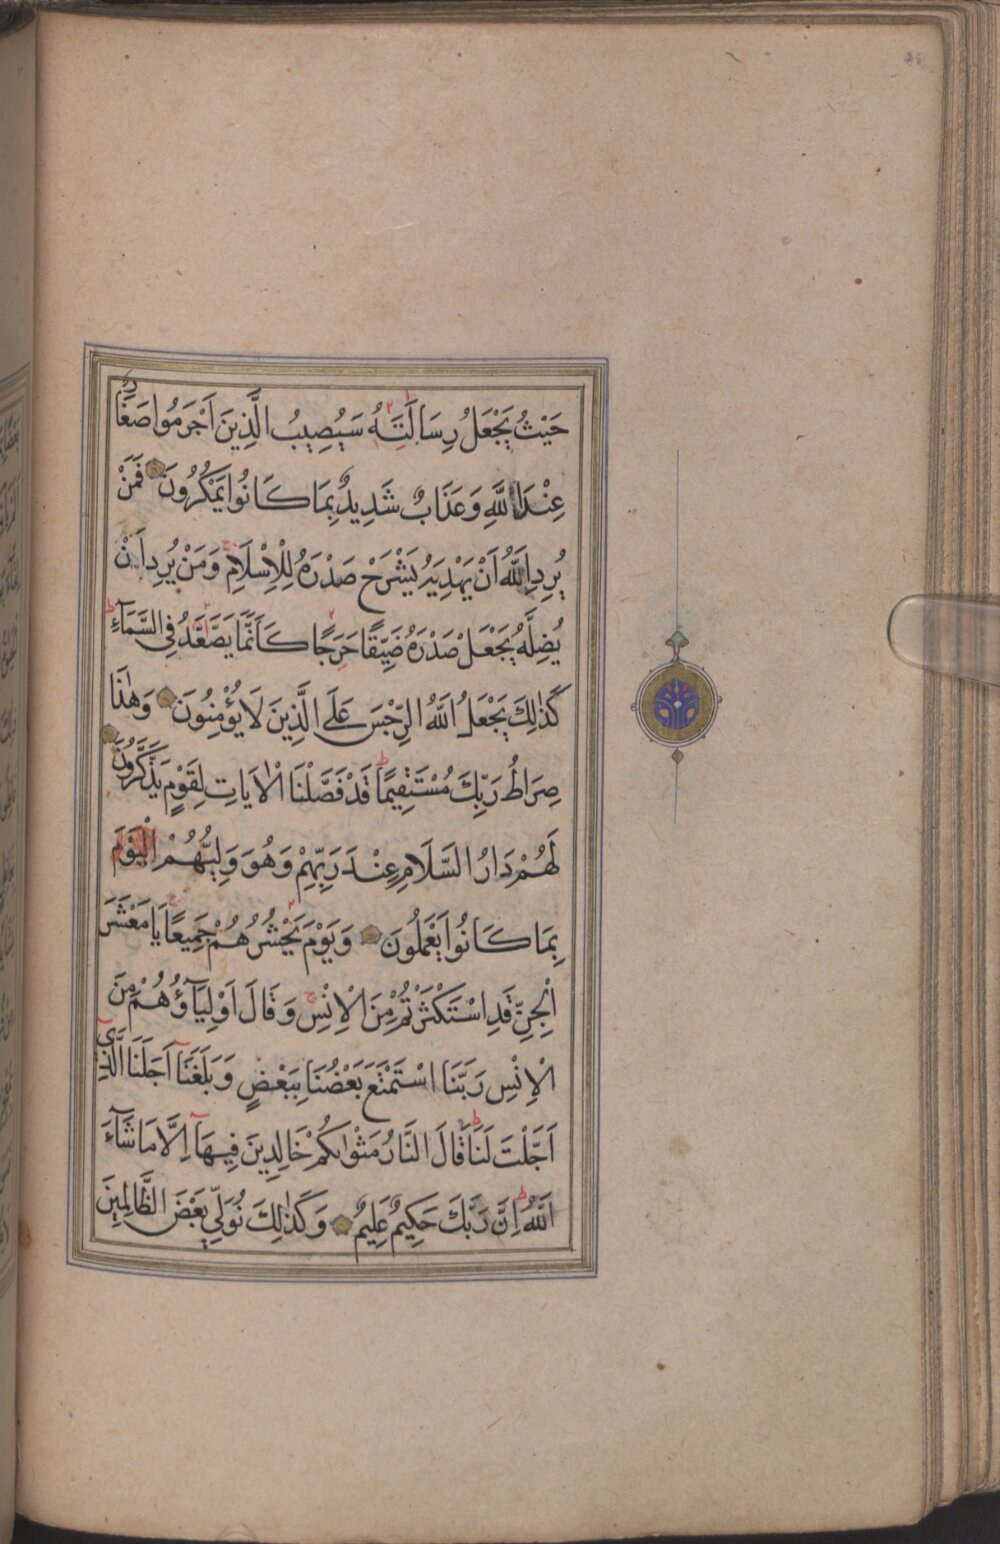 حَيْثُ يَجْعَلُ رِسَالَتَهُ سَيُصِيبُ الَّذِينَ اَجْرَمُوا صَغَارٌ
عِنْدَ اللَّهِ وَعَذَابٌ شَدِيدٌ بِمَا كَانُوا يَمْكُرُونَ فَمَنْ
يُرِدِ اللَّهُ اَنْ يَهْدِيَهُ يَشْرَحْ صَدْرَهُ لِلْاِسْلَامِ وَمَنْ يُرِدْ اَنْ
يُضِلَّهُ يَجْعَلْ صَدْرَهُ ضَيِّقًا حَرَجًا كَاَنَّمَا يَصَّعَّدُ فِي السَّمَآءِ
كَذٰلِكَ يَجْعَلُ اللَّهُ الرِّجْسَ عَلَى الَّذِينَ لَا يُؤْمِنُونَ وَهٰذَا
صِرَاطُ رَبِّكَ مُسْتَقِيمًا قَدْ فَصَّلْنَا الْاٰيَاتِ لِقَوْمٍ يَذَّكَّرُونَ
لَهُمْ دَارُ السَّلَامِ عِنْدَ رَبِّهِمْ وَهُوَ وَلِيُّهُمْ الْيَوْمَ
بِمَا كَانُوا يَعْمَلُونَ وَيَوْمَ يَحْشُرُهُمْ جَمِيعًا يَا مَعْشَرَ
الْجِنِّ قَدِ اسْتَكْثَرْتُمْ مِنَ الْاِنْسِ وَقَالَ اَوْلِيَآؤُهُمْ مِنَ
الْاِنْسِ رَبَّنَا اسْتَمْتَعَ بَعْضُنَا بِبَعْضٍ وَبَلَغْنَآ اَجَلَنَا الَّذِي
اَجَّلْتَ لَنَا قَالَ النَّارُ مَثْوٰيكُمْ خَالِدِينَ فِيهَآ اِلَّا مَا شَآءَ
اللَّهُ اِنَّ رَبَّكَ حَكِيمٌ عَلِيمٌ وَكَذٰلِكَ نُوَلِّي بَعْضَ الظَّالِمِينَ